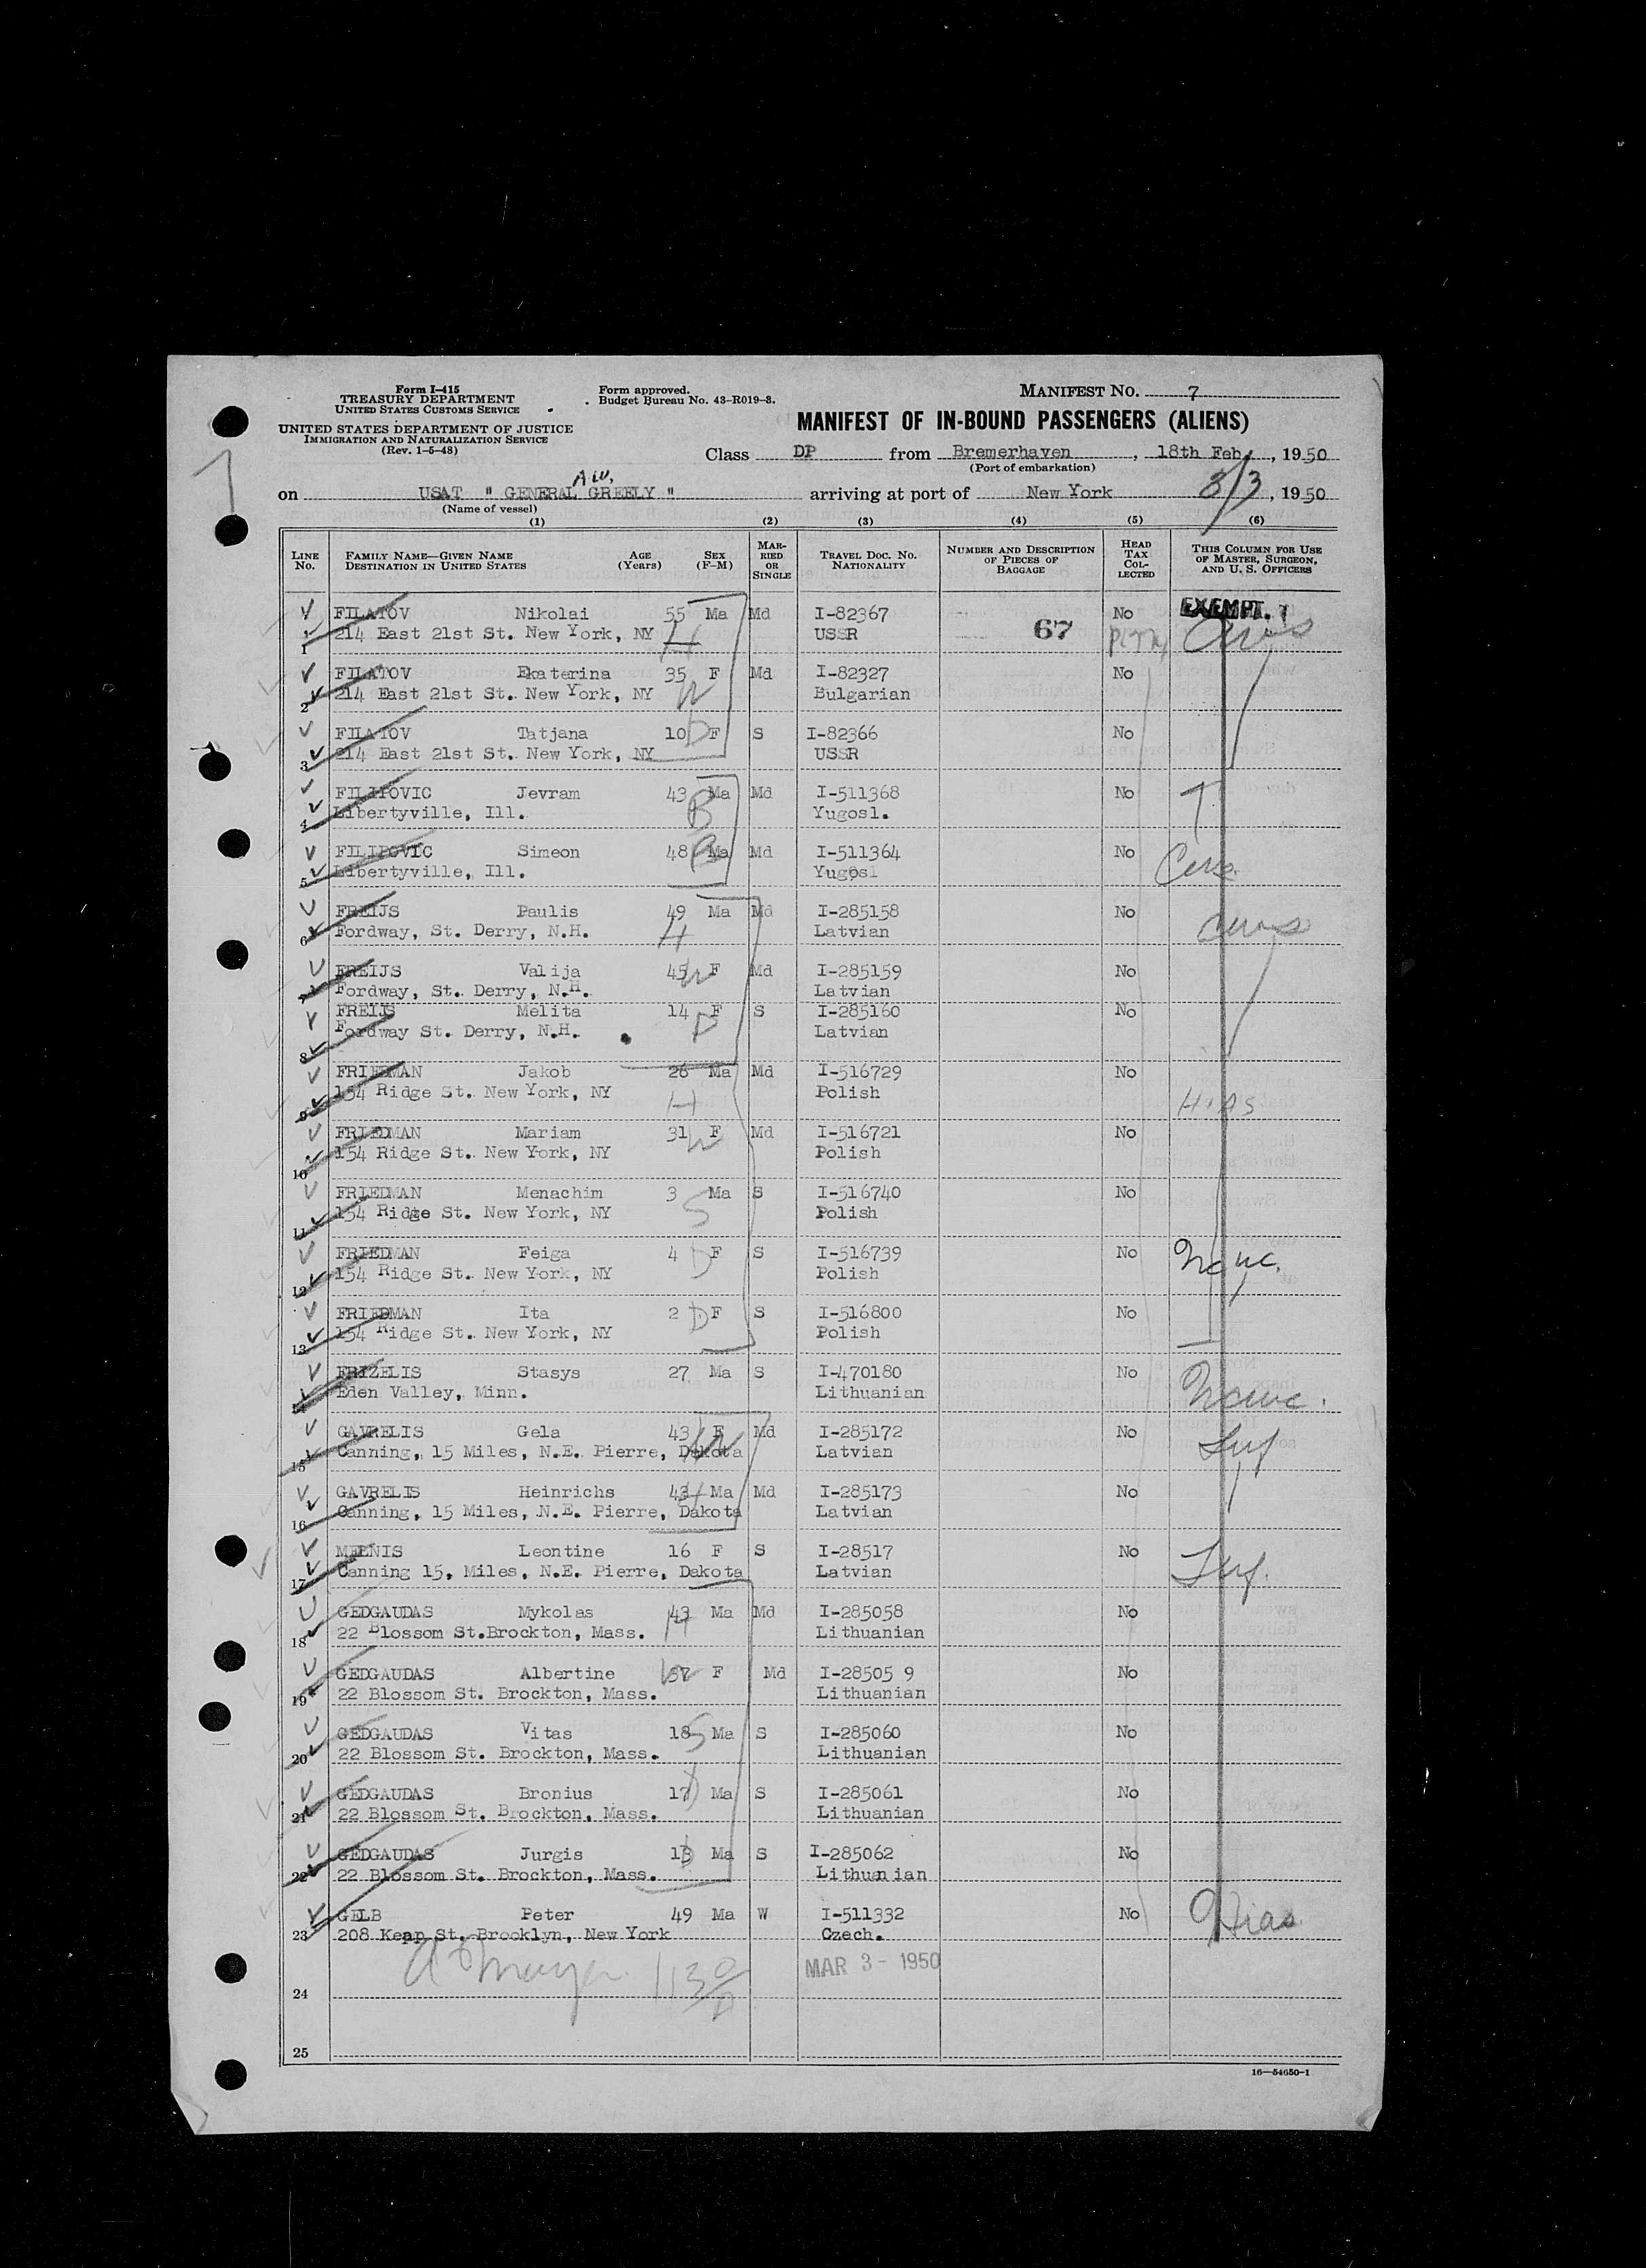 Form I-415
TREASURY DEPARTMENT
UNITED STATES CUSTOMS SERVICE
UNITED STATES DEPARTMENT OF JUSTICE
IMMIGRATION AND NATURALIZATION SERVICE
(Rev. 1-5-48)
Form approved.
Budget Bureau No. 43-R019-3.
MANIFEST NO. 7
MANIFEST OF IN-BOUND PASSENGERS (ALIENS)
Class DP from Bremerhaven, 18th Feb., 1950
(Port of embarkation)
A.W.
on USAT "GENERAL GREELY" arriving at port of New York 3/3, 1950
(Name of vessel)
(1) (2) (3) (4) (5) (6)
LINE No. FAMILY NAME—GIVEN NAME DESTINATION IN UNITED STATES AGE (Years) SEX (F-M) MARRIED OR SINGLE TRAVEL DOC. NO. NATIONALITY NUMBER AND DESCRIPTION OF PIECES OF BAGGAGE HEAD TAX COLLECTED THIS COLUMN FOR USE OF MASTER, SURGEON, AND U. S. OFFICERS
FILATOV Nikolai 55 Ma Md I-82367 No EXEMPT.
1 214 East 21st St. New York, NY H USSR 67
FILATOV Ekaterina 35 F Md I-82327 No
2 214 East 21st St. New York, NY W Bulgarian
FILATOV Tatjana 10 D F S I-82366 No
3 214 East 21st St. New York, NY USSR
FILIPOVIC Jevram 43 Ma Md I-511368 No
4 Libertyville, Ill. B Yugosl.
FILIPOVIC Simeon 48 B Ma Md I-511364 No
5 Libertyville, Ill. Yugosl
FREIJS Paulis 49 Ma Md I-285158 No
6 Fordway, St. Derry, N.H. H Latvian
FREIJS Valija 45 W F Md I-285159 No
7 Fordway, St. Derry, N.H. Latvian
FREIJS Melita 14 F S I-285160 No
8 Fordway St. Derry, N.H. D Latvian
FRIEDMAN Jakob 26 Ma Md I-516729 No
9 154 Ridge St. New York, NY H Polish HIAS
FRIEDMAN Mariam 31 W F Md I-516721 No
10 154 Ridge St. New York, NY Polish
FRIEDMAN Menachim 3 Ma S I-516740 No
11 154 Ridge St. New York, NY S Polish
FRIEDMAN Feiga 4 D F S I-516739 No
12 154 Ridge St. New York, NY Polish
FRIEDMAN Ita 2 D F S I-516800 No
13 154 Ridge St. New York, NY Polish
FRIZELIS Stasys 27 Ma S I-470180 No
14 Eden Valley, Minn. Lithuanian
GAVRELIS Gela 43 F Md I-285172 No
15 Canning, 15 Miles, N.E. Pierre, Dakota W Latvian
GAVRELIS Heinrichs 43 H Ma Md I-285173 No
16 Canning, 15 Miles, N.E. Pierre, Dakota Latvian
MELNIS Leontine 16 F S I-28517 No
17 Canning 15, Miles, N.E. Pierre, Dakota Latvian
GEDGAUDAS Mykolas 43 Ma Md I-285058 No
18 22 Blossom St.Brockton, Mass. H Lithuanian
GEDGAUDAS Albertine F Md I-28505 9 No
19 22 Blossom St. Brockton, Mass. Lithuanian
GEDGAUDAS Vitas 18 S Ma S I-285060 No
20 22 Blossom St. Brockton, Mass. Lithuanian
GEDGAUDAS Bronius 17 Ma S I-285061 No
21 22 Blossom St. Brockton, Mass. Lithuanian
GEDGAUDAS Jurgis 13 Ma S I-285062 No
22 22 Blossom St. Brockton, Mass. Lithuanian
GELB Peter 49 Ma W I-511332 No Hias
23 208 Keap St. Brooklyn, New York Czech.
MAR 3 - 1950
24
25
16—54650-1